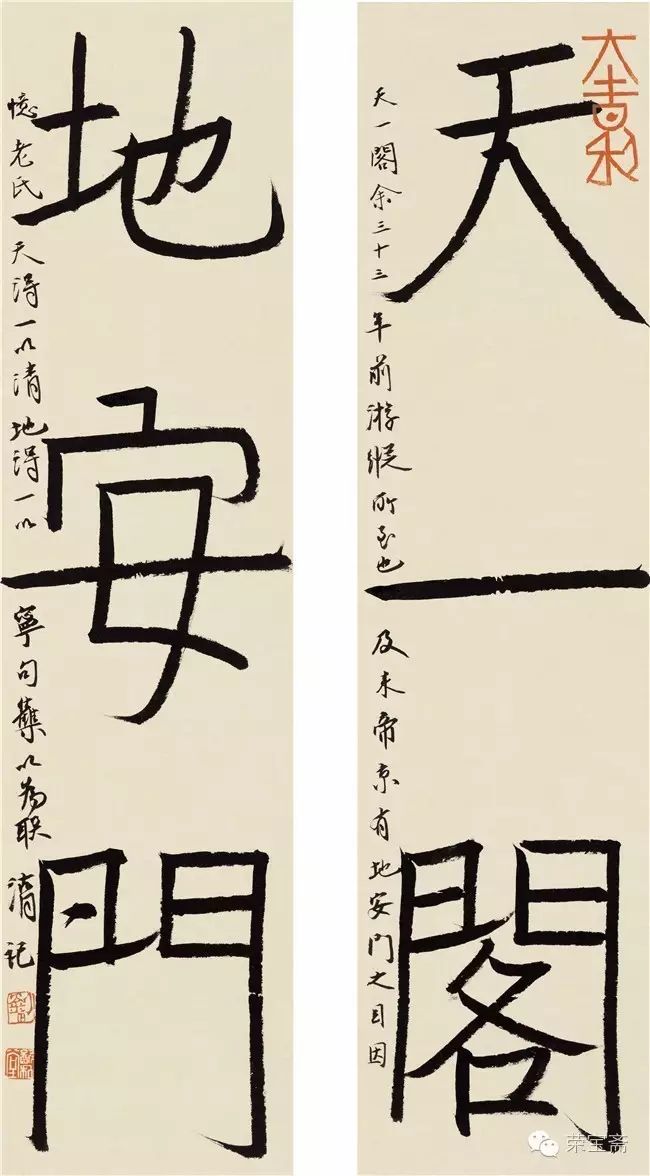 天一閣
天一閣余三十三年前游縱所至也及来帝京有地安門之目因
地安門
憶老氏天得一以清地得一以寧句集以為联濤記
荣宝斋